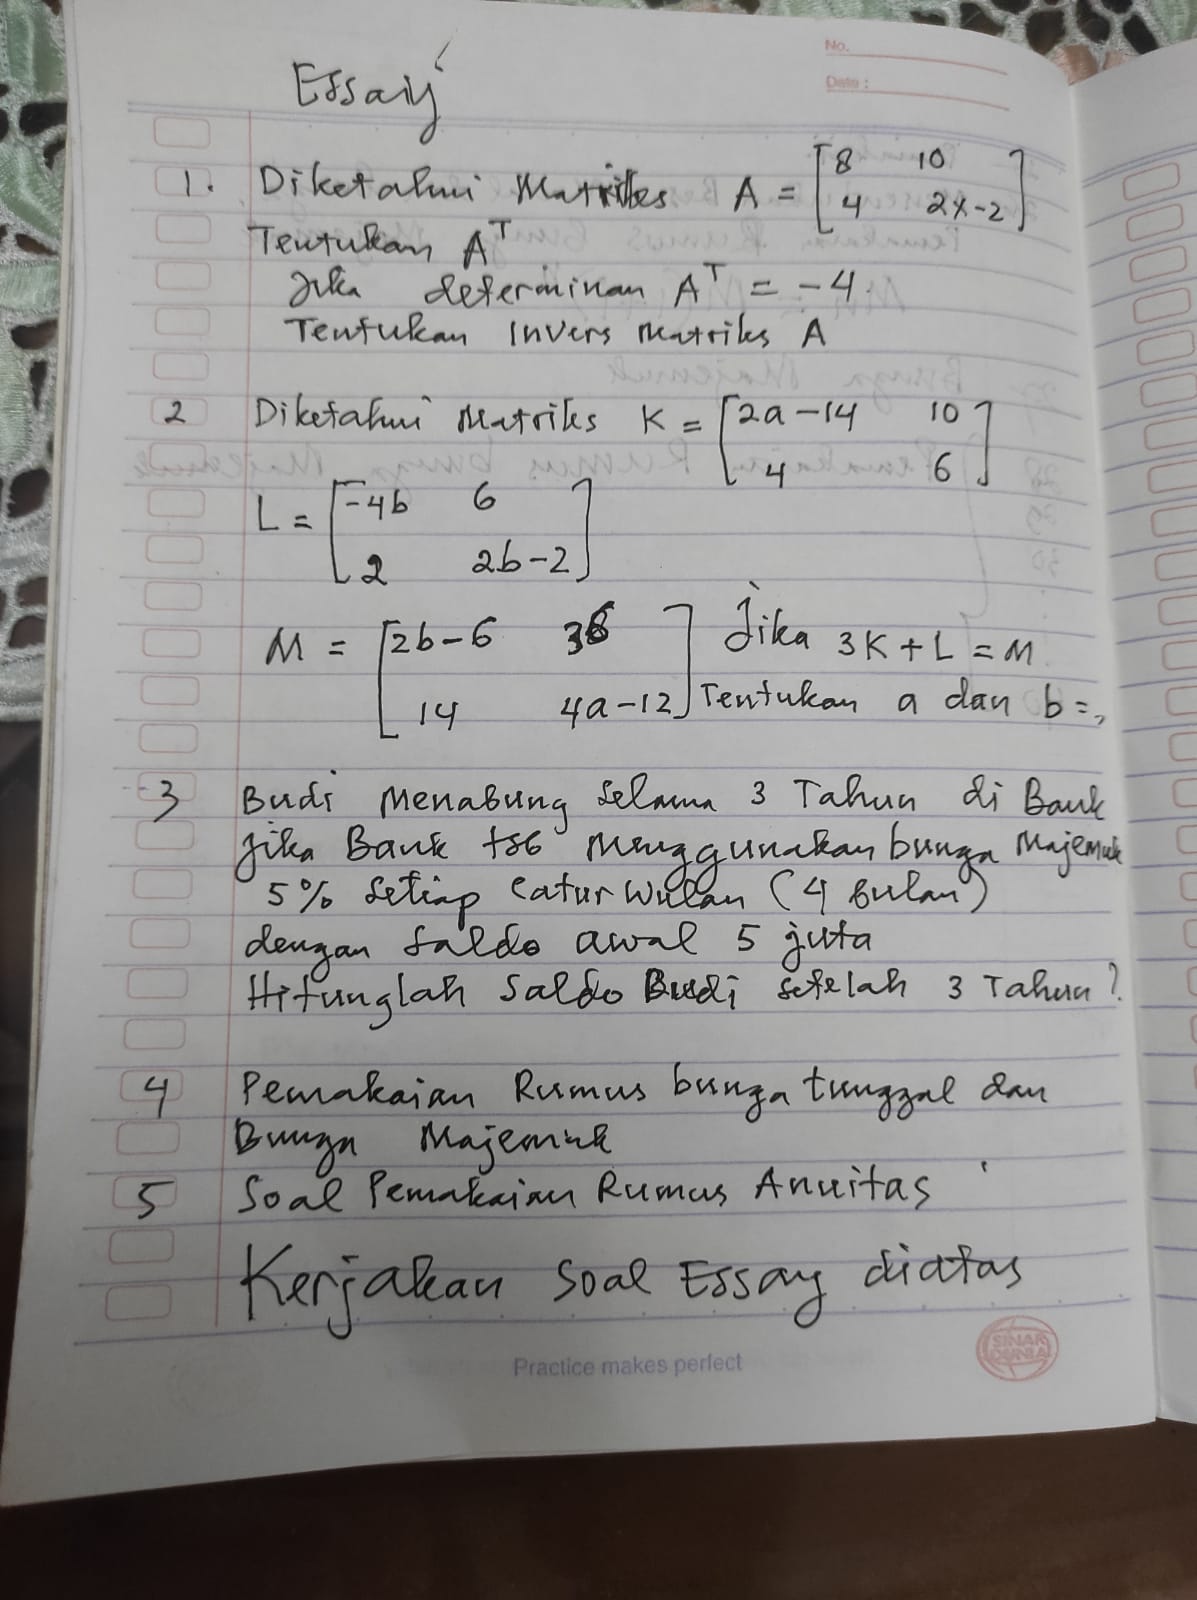 No.
Date :
Essaiy
1. Diketahui Matriks A = [8 10
4 2x-2]
Tentukan A^T
Jika determinan A^T = -4.
Tentukan Invers Matriks A
2 Diketahui Matriks K = [2a-14 10
4 6]
L = [-4b 6
2 2b-2]
M = [2b-6 36
14 4a-12] Jika 3K + L = M
Tentukan a dan b =
3 Budi Menabung Selama 3 Tahun di Bank
Jika Bank tsb Menggunakan bunga Majemuk
5% Setiap Catur Wulan (4 Bulan)
dengan Saldo awal 5 juta
Hitunglah Saldo Budi setelah 3 Tahun?
4 Pemakaian Rumus bunga tunggal dan
Bunga Majemuk
5 Soal Pemakaian Rumus Anuitas
Kerjakan Soal Essay diatas
SINAR
DUNIA
Practice makes perfect